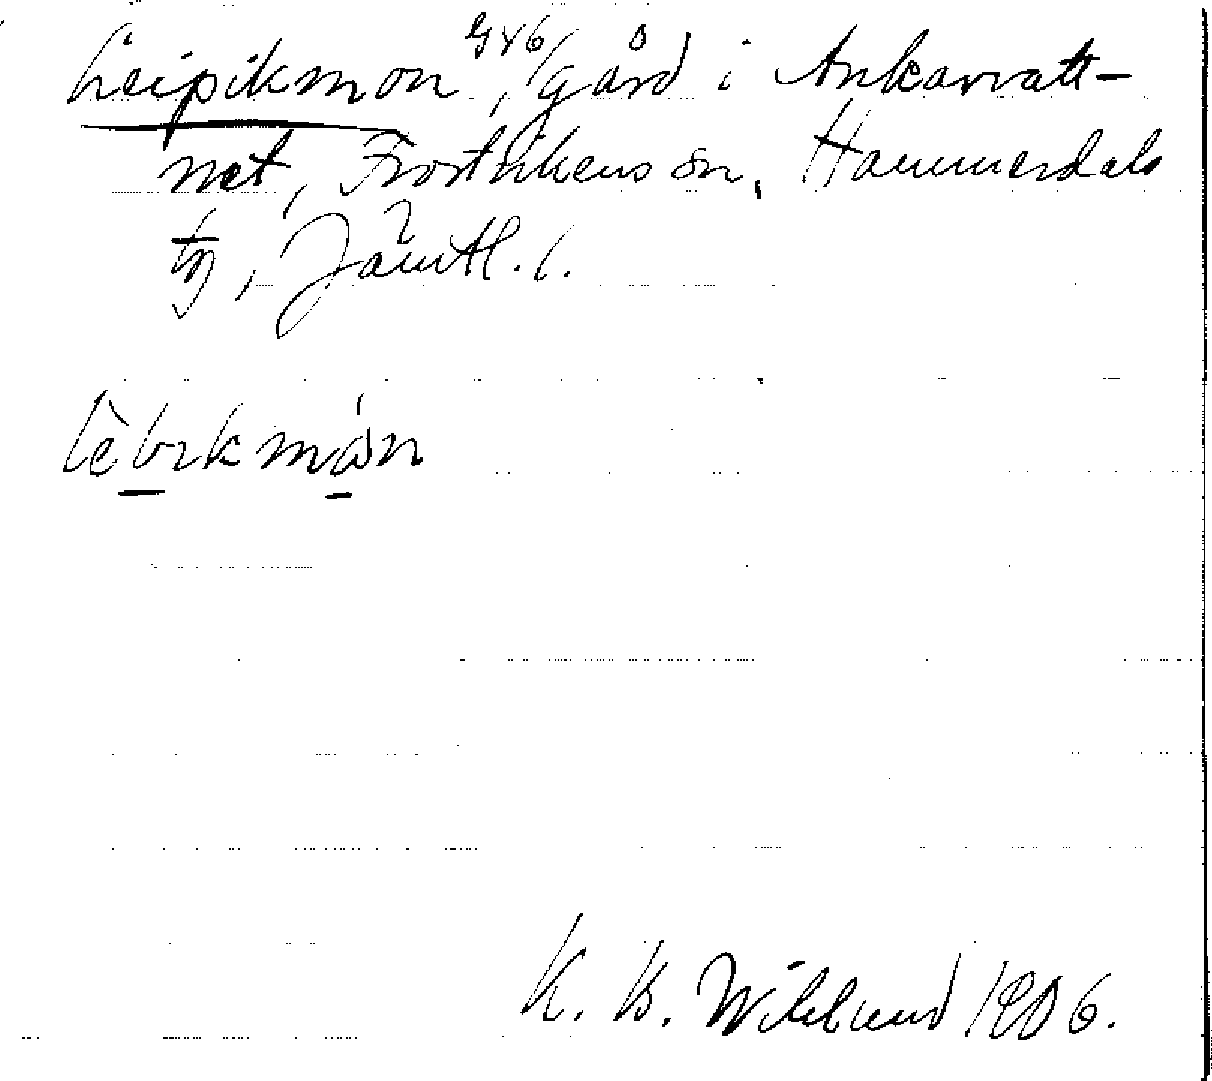 Leipikmon, gård i Ankarvatt-
net, Frostvikens sn, Hammerdals
tg, Jämtl. l.
K. B. Wiklund 1906.